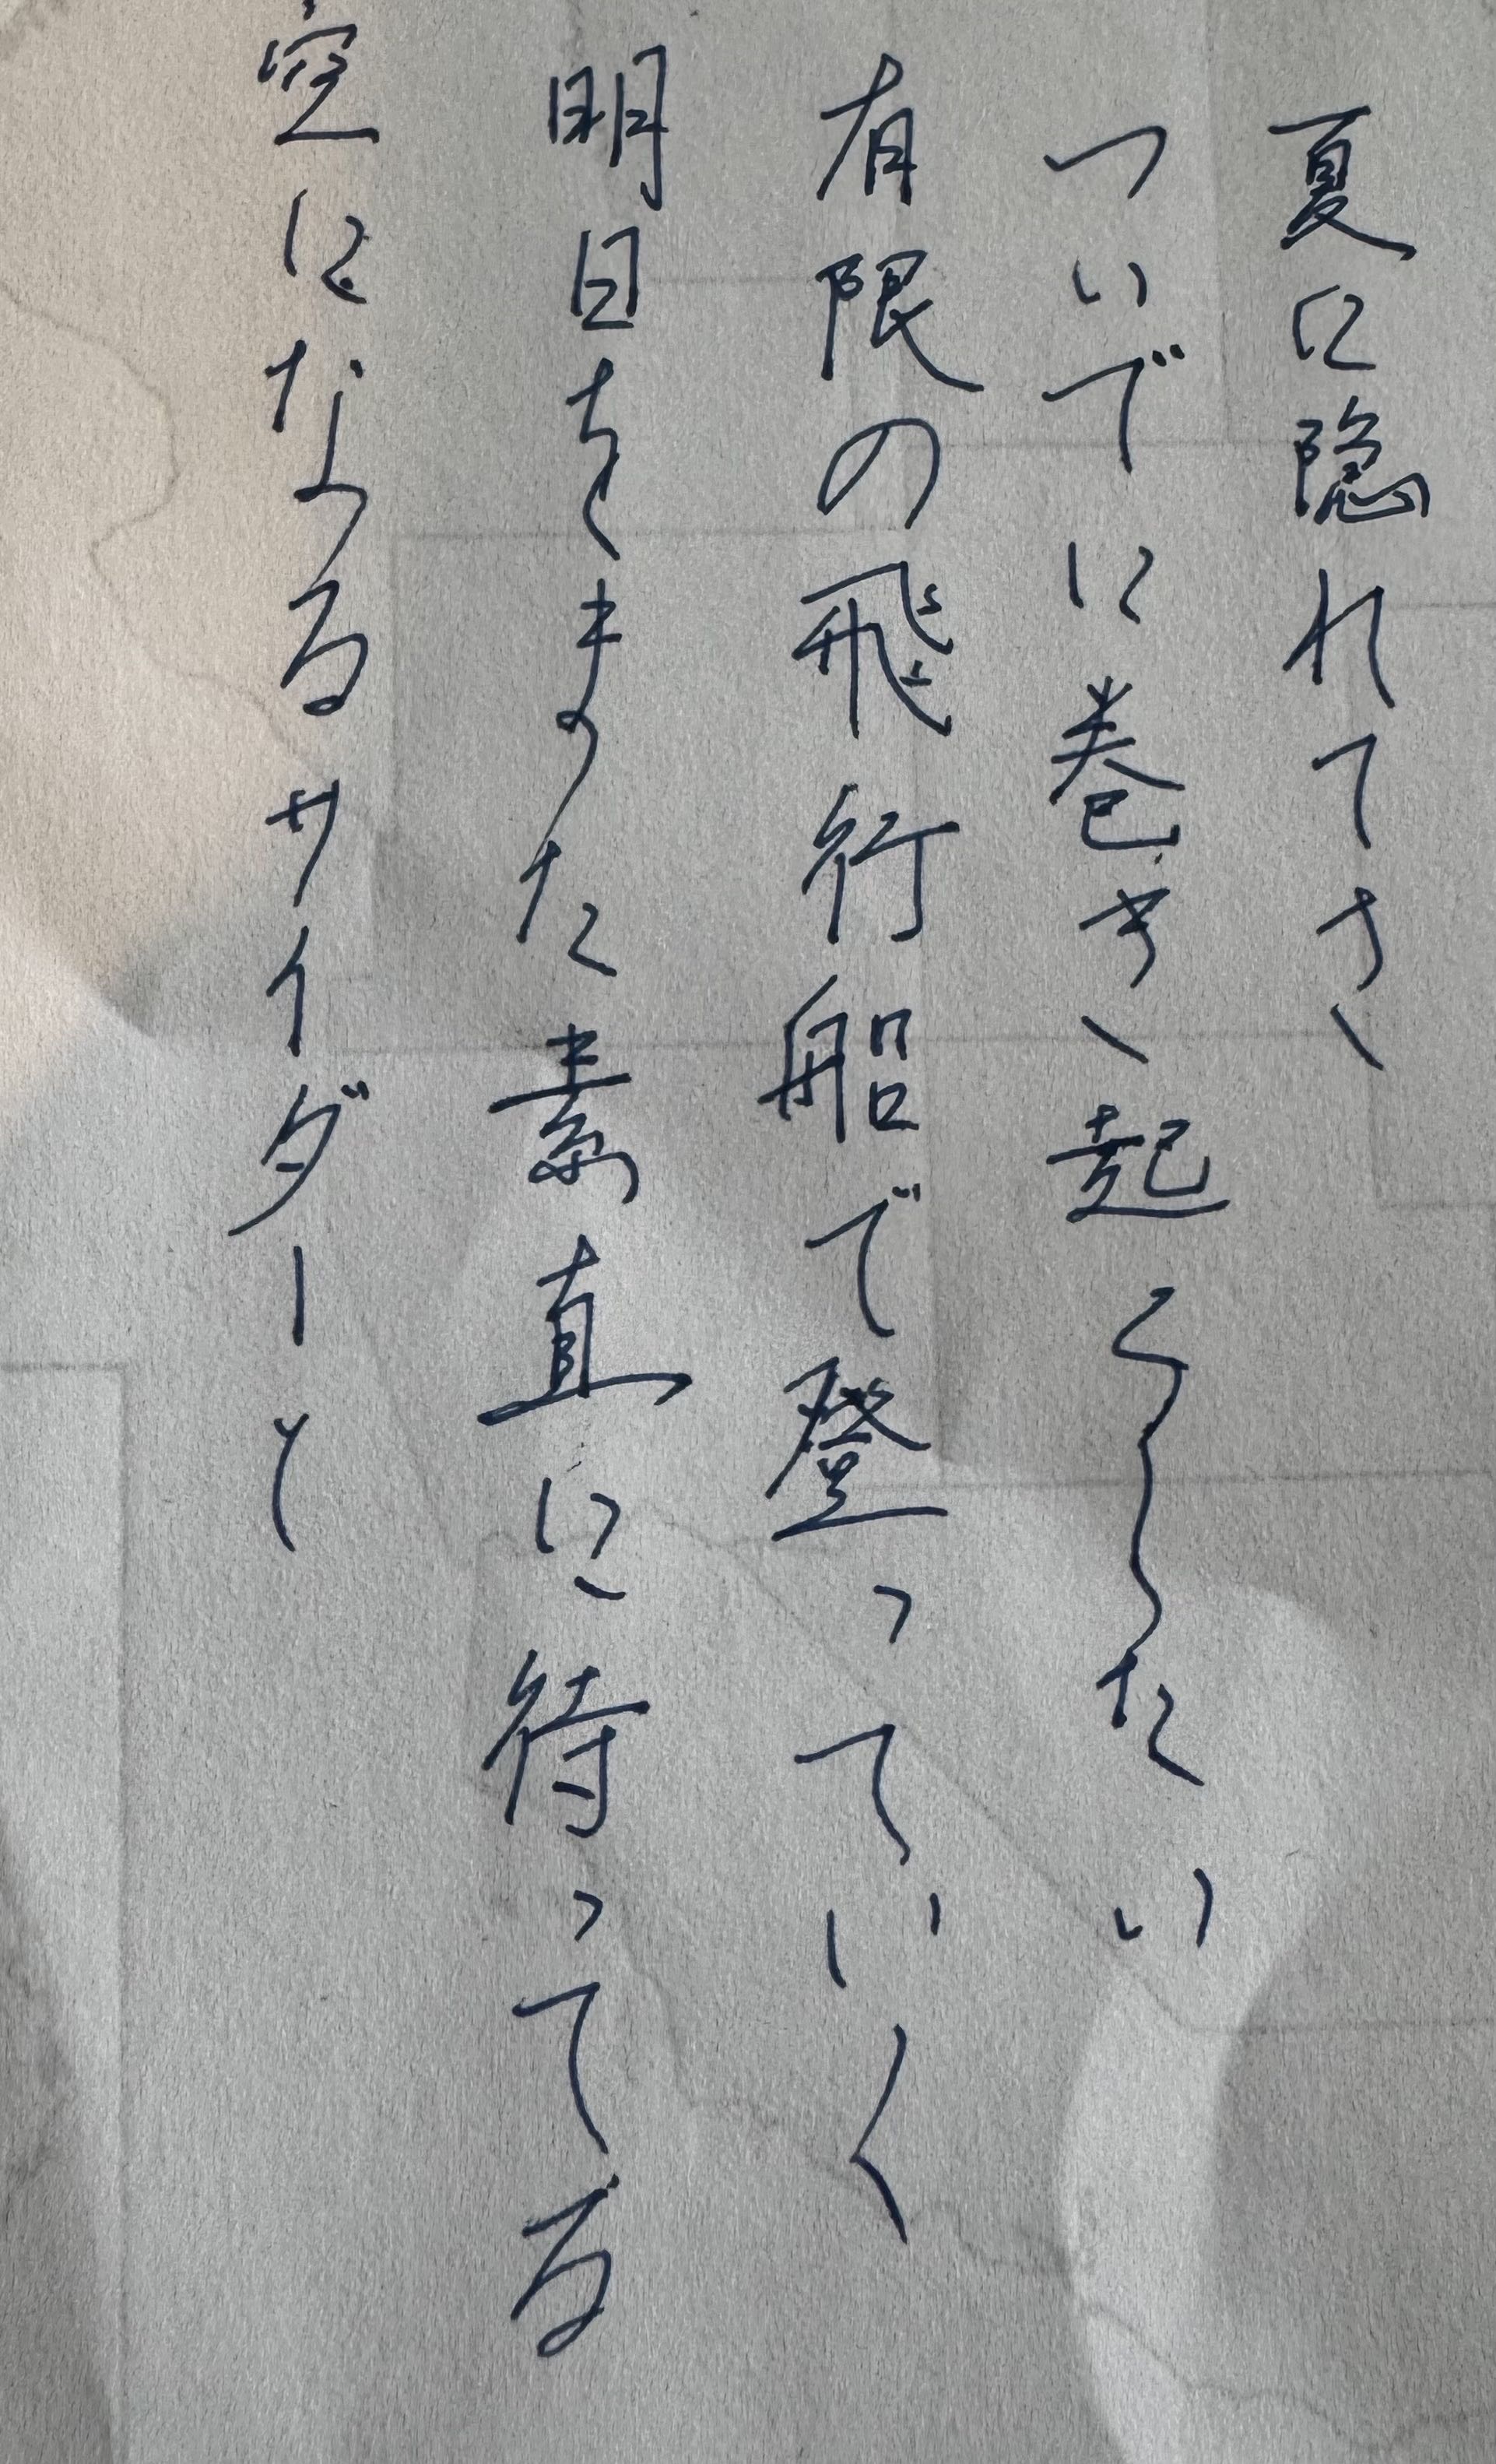 夏に隠れてさ
ついでに巻き起こしたい
有限の飛行船で登っていく
明日をまた素直に待ってる
空になるサイダーと